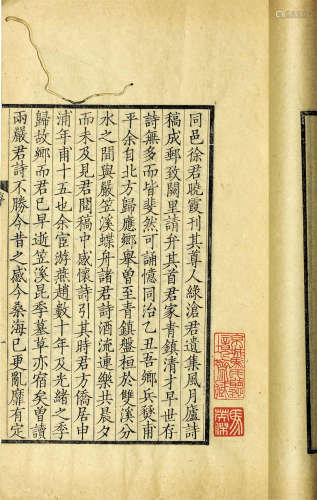 同邑徐君曉霞刊其尊人緣滄君遺集風月廬詩
稿成郵致闕里請弁其首君家青鎮清才早世存
詩無多而皆斐然可誦憶同治乙丑吾鄉兵燹甫
平余自北方歸應鄉舉曾至青鎮盤桓於雙溪分
水之間與嚴笠溪蝶舟諸君詩酒流連樂共晨夕
而未及見君閱稿中感懷詩引其時君方僑居申
浦年甫十五也余宦游燕趙數十年及光緒之季
歸故鄉而君已早逝笠溪昆季墓草亦宿矣曾讀
兩嚴君詩不勝今昔之感今桑海已更亂靡有定